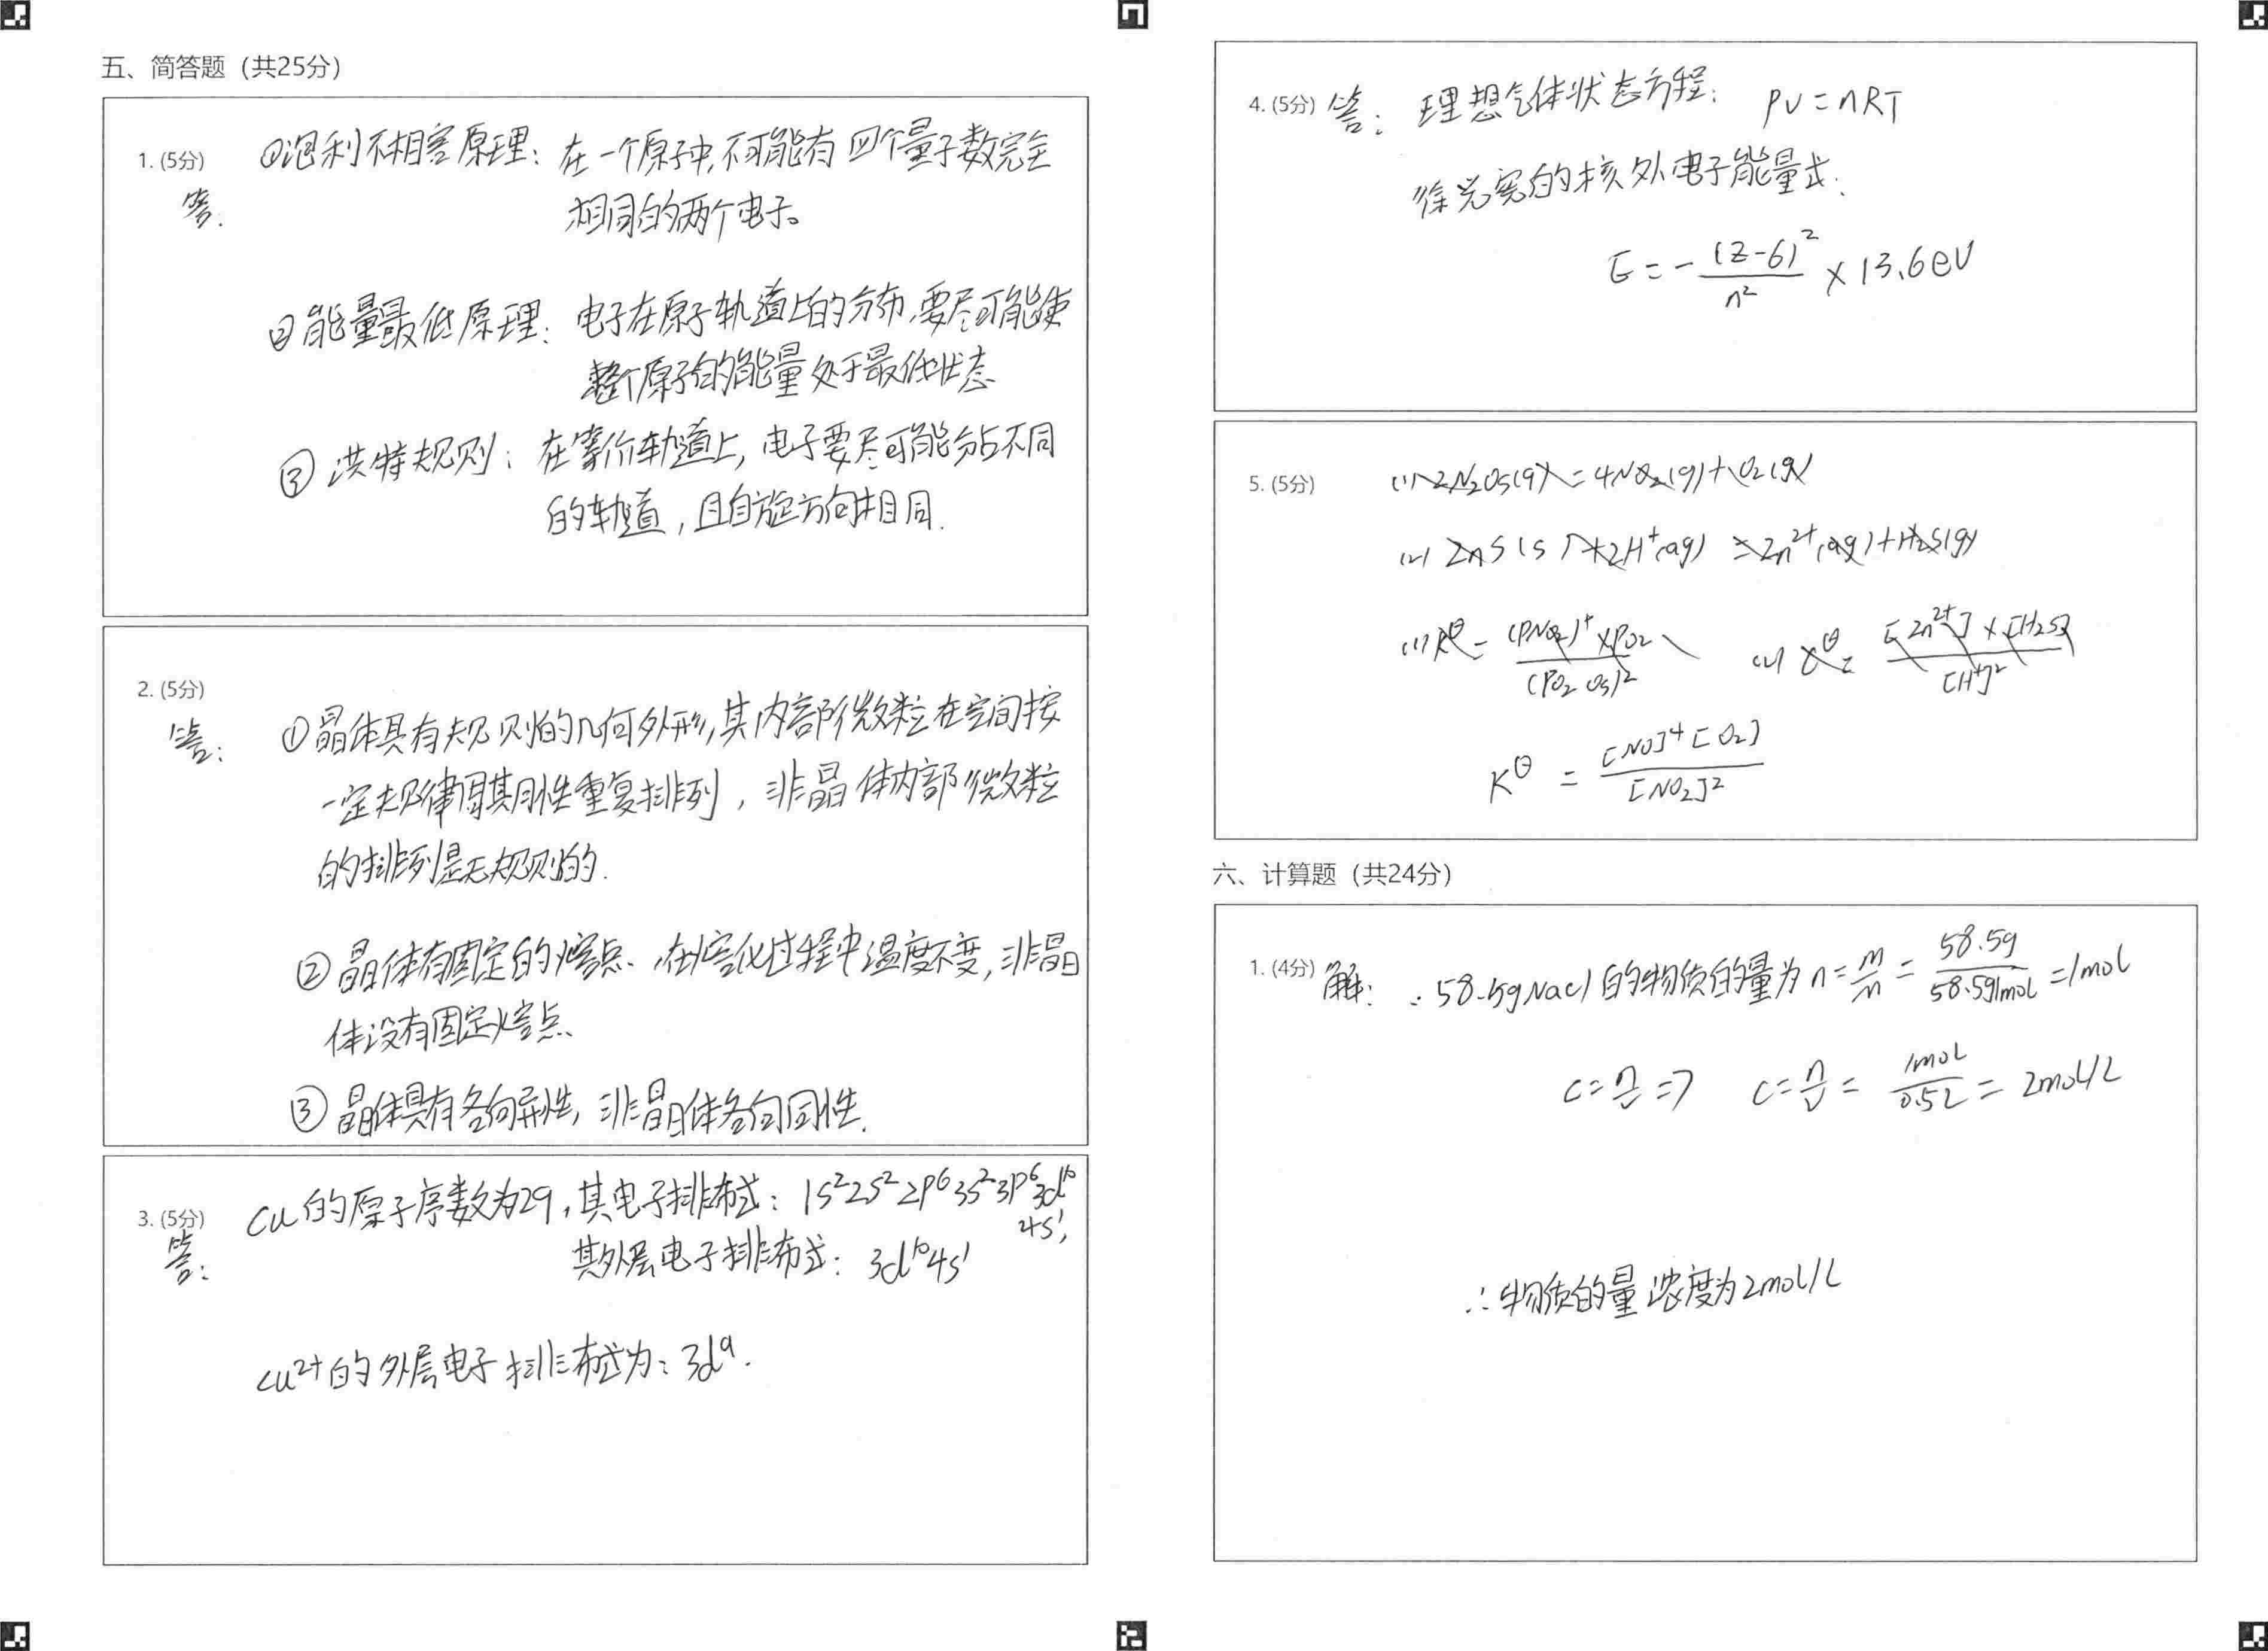 五、简答题（共25分）
1. (5分) ①泡利不相容原理：在一个原子中,不可能有四个量子数完全
答：
相同的两个电子。
②能量最低原理：电子在原子轨道上的分布,要尽可能使
整个原子的能量处于最低状态
③洪特规则：在等价轨道上，电子要尽可能分占不同
的轨道，且自旋方向相同.
2. (5分)
答：①晶体具有规则的几何外形,其内部微粒在空间按
一定规律周期性重复排列，非晶体内部微粒
的排列是无规则的.
②晶体有固定的熔点、在熔化过程中温度不变,非晶
体没有固定熔点、
③晶体具有各向异性，非晶体各向同性.
3. (5分) Cu的原子序数为29，其电子排布式：1s²2s²2p⁶3s²3p⁶3d¹⁰
4s¹,
答：
其外层电子排布式：3d¹⁰4s¹
Cu²⁺的外层电子排布式为：3d⁹.
4. (5分) 答：理想气体状态方程：PV=nRT
徐光宪的核外电子能量式：
E=-(Z-6)²/n²×13.6eV
5. (5分) (1) 2N₂O₅(g)=4NO₂(g)+O₂(g)
(2) ZnS(s)+2H⁺(aq)=Zn²⁺(aq)+H₂S(g)
(1) K^θ=(PNO₂)⁴×PO₂/(PO₂O₅)² (2) K^θ=[Zn²⁺]×[H₂S]/[H⁺]²
K^θ=[NO]⁴[O₂]/[NO₂]²
六、计算题（共24分）
1. (4分) 解：∴58.5gNaCl的物质的量为n=m/m=58.5g/58.5g/mol=1mol
c=n/v=> c=n/v=1mol/0.5L=2mol/L
∴物质的量浓度为2mol/L